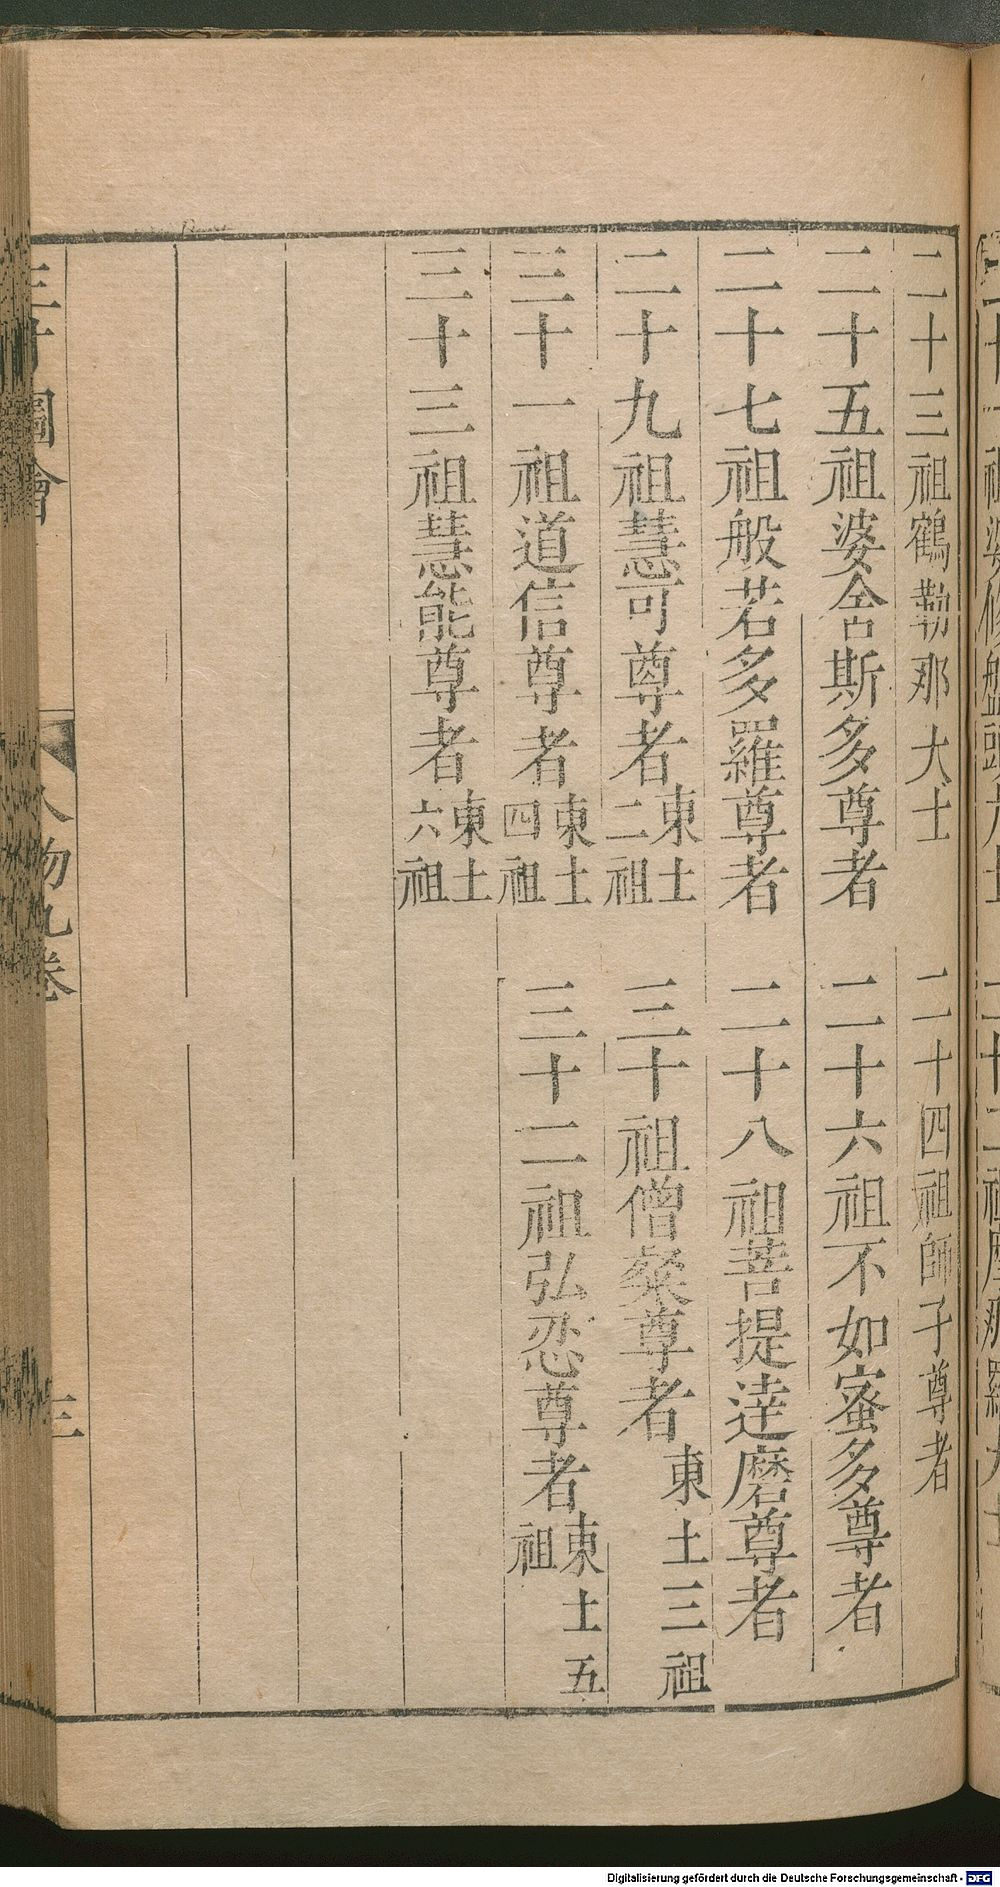 二十三祖鶴勒那大士 二十四祖師子尊者
二十五祖婆舍斯多尊者 二十六祖不如蜜多尊者
二十七祖般若多羅尊者 二十八祖菩提達磨尊者
二十九祖慧可尊者東土二祖 三十祖僧粲尊者東土三祖
三十一祖道信尊者東土四祖 三十二祖弘忍尊者東土五祖
三十三祖慧能尊者東土六祖
三才圖會 人物九卷 三
Digitalisierung gefördert durch die Deutsche Forschungsgemeinschaft - DFG